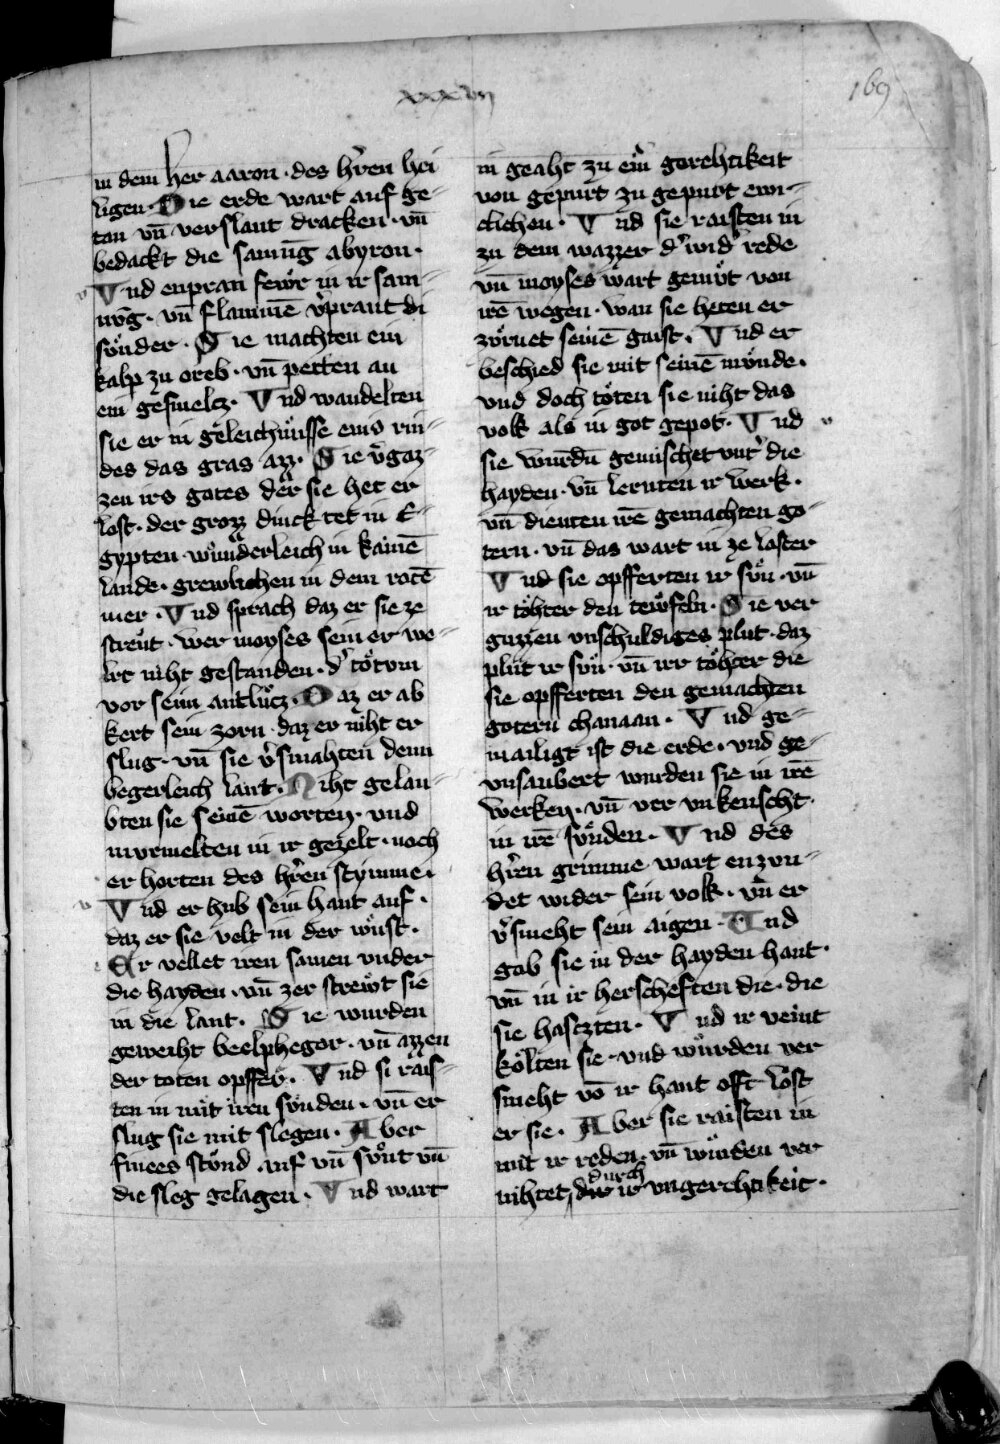 xxxvii
169
in dem her aaron · des hr̄en hei
ligen · Die erde wart auf ge-
tan vn̄ verslant dracken · vn̄
bedackt die samūg abyron ·
Vnd enpran fewͦr in ir sam-
nvͦg · vn̄ flammē v̓prant di
sóͤnder · Sie machten ein
kalp zu oreb · vn̄ petten an
ein gesmelcz · Vnd wandelten
sie er in geleichnuͤsse eins rin-
des das gras azz · Sie v̓gaz-
zen irs gotes der sie het er
lost · der grozz dinck tet in E-
gypten · wuͦnderleich in kainē
lande · grewlichen in dem rotē
mer · Vnd sprach daz er sie ze
streuͤt · wer moyses sein er we-
lt niht gestanden · d̓ toͤtvm
vor seim antluͤcz · Daz er ab
kert sein zorn · daz er niht er
slug · vn̄ sie v̓smahten dem
begerleich lant · Niht gelau-
bten sie seinē worten · vnd
murmelten in ir gezelt · noch
er horten des hr̄en stymme ·
Vnd er hub sein hant auf ·
daz er sie velt in der wuͤst ·
Er vellet iren samen vnder
die hayden · vn̄ zer strewͦt sie
in die lant · Sie wurden
geweiht beelphegor · vn̄ azzen
der toten opffer · Vnd si rais-
ten in mit iren suͤnden · vn̄ er
slug sie mit slegen · Aber
finees stuͦnd auf vn̄ suͦnt vn̄
die sleg gelagen · Vnd wart
in geaht zu eim̄ gerehtikeit
von gepurt zu gepurt ewi-
clichen · Vnd sie raisten in
zu dem wazzer d̓ wid̓ rede
vn̄ moyses wart gemuͤt von
irē wegen · wan sie heten er
zoͤrnet seinē gaist · Vnd er
beschied sie mit seinē muͤnde ·
vnd doch toͤten sie niht das
volk als in got gepot · Vnd
sie wurdn̄ gemischet vnt̓ die
hayden · vn̄ lernten ir werk ·
vn̄ dienten irē gemachten go-
tern · vn̄ das wart in ze laster
Vnd sie opfferten ir suͤn · vn̄
ir toͤhter den tewͦfeln · Sie ver
guzzen vnschuldiges plut · daz
plut ir suͤn · vn̄ irr toͤhter die
sie opfferten den gemachten
gotern chanaan · Vnd ge-
mailigt ist die erde · vnd ge-
vnsaubert wurden sie in irē
werken · vn̄ ver vnkeuscht ·
in irē suͤnden · Vnd des
hr̄en grimme wart enzvn-
det wider sein volk · vn̄ er
v̓smeht sein aigen · Vnd
gab sie in der hayden hant ·
vn̄ in ir herscheften die · die
sie hasczten · Vnd ir veint
koͤlten sie · vnd wuͤrden ver
smeht vō ir hant offt lost
er sie · Aber sie raisten in
mit ir reden · vn̄ wuͤrden ver
nihtet durch ir vngerehtikeit ·